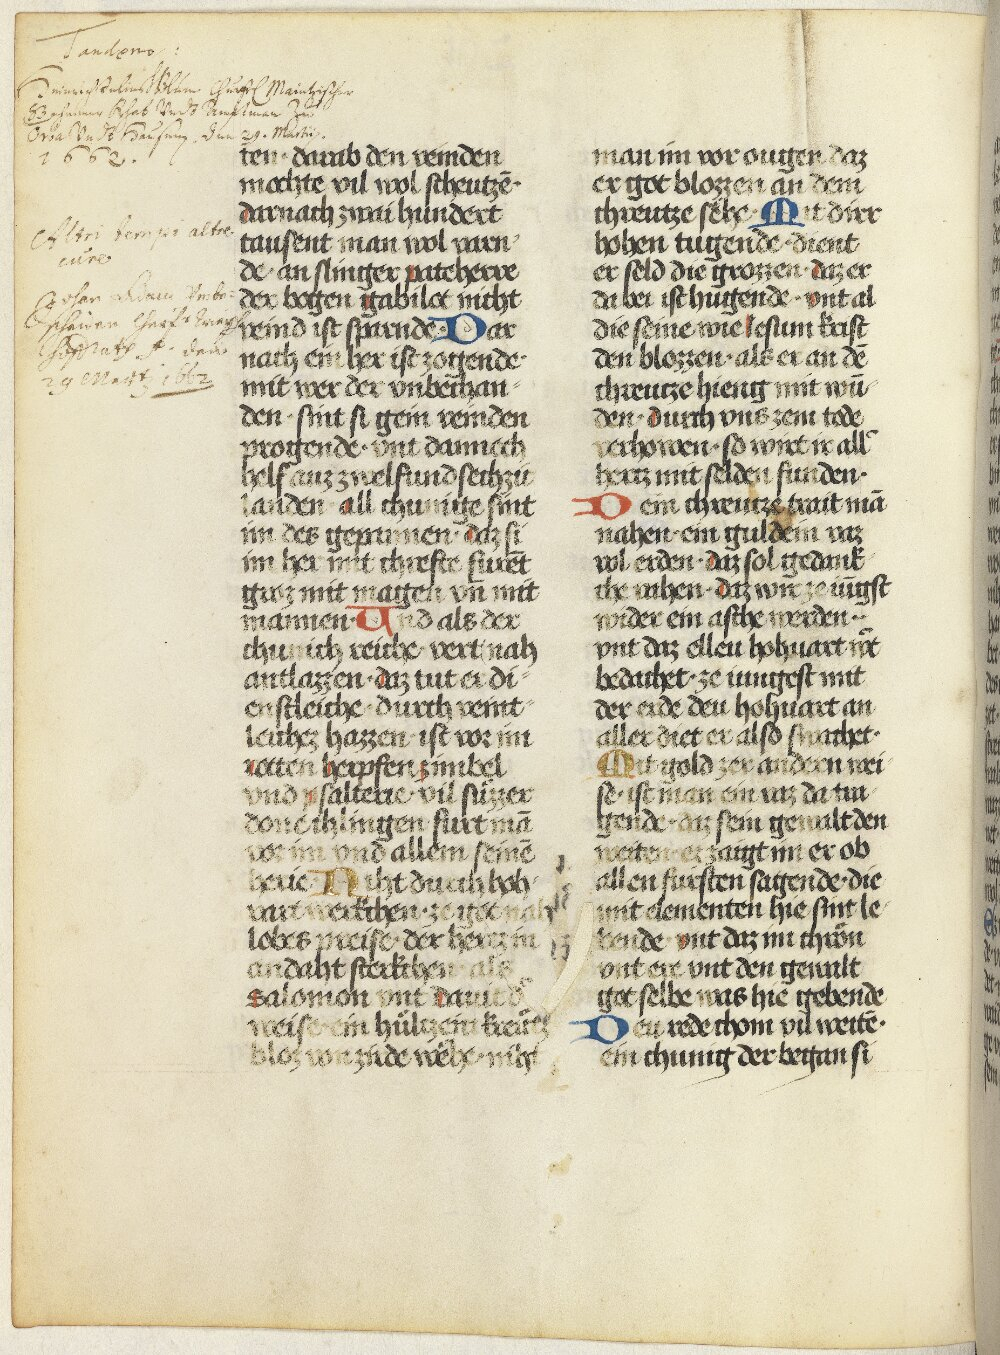 Tandem:
1662.
Altri tempi altre
cure
29 Martz 1662
ten · darab den veinden
mochte vil wol scheutzē ·
darnach zwai hundert
tausent man wol varn
de · an slinger pateherre
der bogen gabilot nicht
veind ist sparnde · Dar
nach ein her ist zogende ·
mit wer der vnbechan
den · sint si gein veinden
progende · vnt dannoch
helf auz zwelf und sechzic
landen · all chunige sint
im des gepunnen · daz si
im her mit chrefte furēt
groz mit magen vn̄ mit
mannen · Und als der
chunich reiche · vert nah
antlazzen · daz tut er di
enstleiche · durch veint
leichez hazzen · ist vor im
rotten herpfen zimbel
vnd psalterie · vil sůzzer
done chlingen furt mā
vor im vnd allem seinē
herie · Niht durch hoh
vart werkchen · ze got nah
lobes preise · der hertz in
andaht sterkchen · als
salomon vnt dauit d͛
weise · ein hůltzein kreůtz
bloz von zirde wehe · niht
man im vor ougen daz
er got blozzen an dem
chreutze sehe · Mit dirr
hohen tugende · dient
er seld die grozzen · daz er
da bei ist hugende · vnt al
die seine wie iesum krist
den blozzen · als er an dē
chreutze hieng mit wū
den · durch vns zem tode
verhowen · so wirt ir all͛
hertz mit selden funden ·
Dein chreutze trait mā
nahen · ein guldein vaz
vol erden · daz sol gedank
che vahen · daz wir ze iūgst
wider ein asche werden ·
vnt daz elleu hohuart rŏt
bedauhet · ze iungest mit
der erde deu hohuart an
aller diet er also swachet ·
Mit gold zer andern wei
se · ist man ein vaz da tra
gende · daz sein gewalt den
weiten · erzaigt im er ob
allen fursten sagende · die
mit elementen hie sint le
bende · vnt daz im chrŏn
vnt ere vnt den gewalt
got selbe was hie gebende
Deu rede chom vil weitē ·
ein chunig der began si